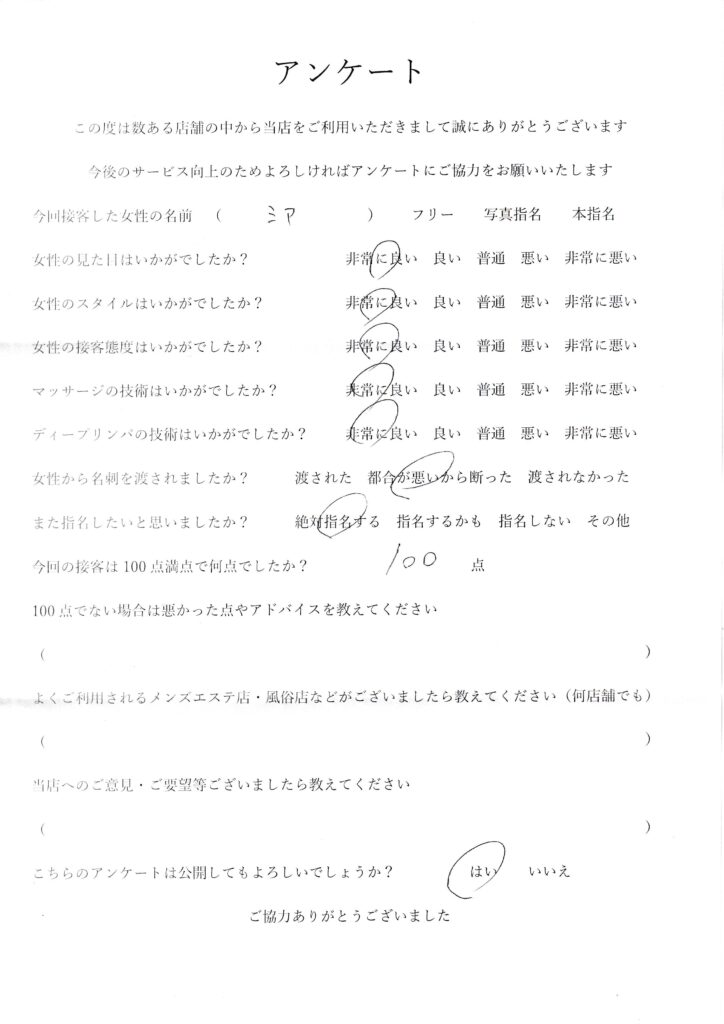 アンケート
この度は数ある店舗の中から当店をご利用いただきまして誠にありがとうございます
今後のサービス向上のためよろしければアンケートにご協力をお願いいたします
今回接客した女性の名前 （ ミア ） フリー 写真指名 本指名
女性の見た目はいかがでしたか？ 非常に良い 良い 普通 悪い 非常に悪い
女性のスタイルはいかがでしたか？ 非常に良い 良い 普通 悪い 非常に悪い
女性の接客態度はいかがでしたか？ 非常に良い 良い 普通 悪い 非常に悪い
マッサージの技術はいかがでしたか？ 非常に良い 良い 普通 悪い 非常に悪い
ディープリンパの技術はいかがでしたか？ 非常に良い 良い 普通 悪い 非常に悪い
女性から名刺を渡されましたか？ 渡された 都合が悪いから断った 渡されなかった
また指名したいと思いましたか？ 絶対指名する 指名するかも 指名しない その他
今回の接客は100点満点で何点でしたか？ 100 点
100点でない場合は悪かった点やアドバイスを教えてください
（ ）
よくご利用されるメンズエステ店・風俗店などがございましたら教えてください（何店舗でも）
（ ）
当店へのご意見・ご要望等ございましたら教えてください
（ ）
こちらのアンケートは公開してもよろしいでしょうか？ はい いいえ
ご協力ありがとうございました